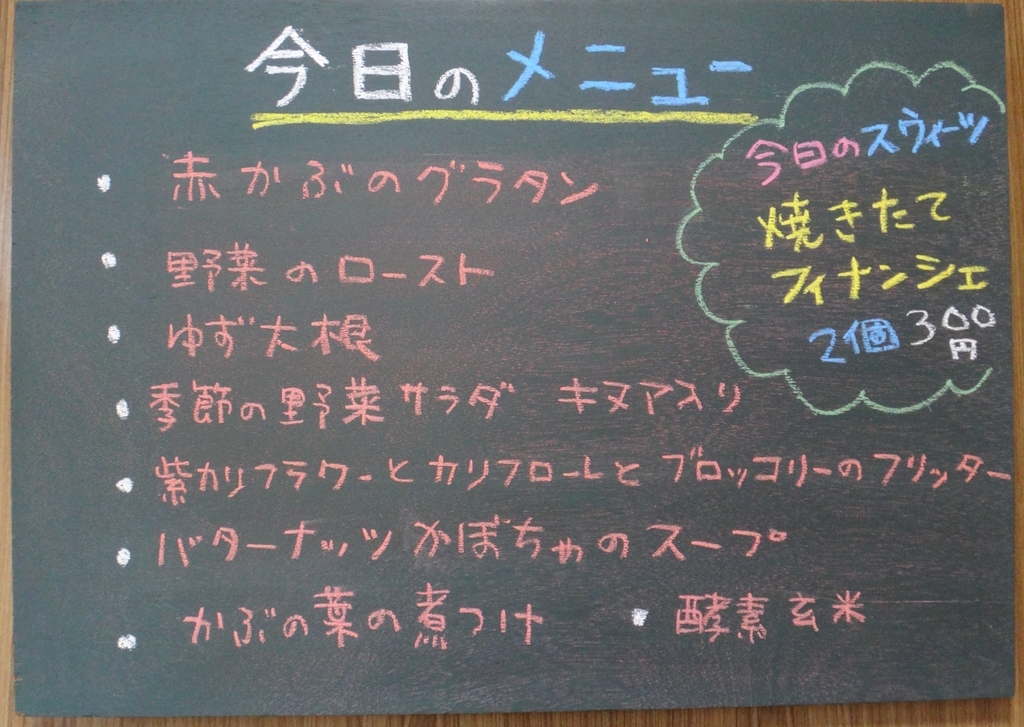 今日のメニュー
・赤かぶのグラタン
・野菜のロースト
・ゆず大根
・季節の野菜サラダ キヌア入り
・紫カリフラワーとカリフローレとブロッコリーのフリッター
・バターナッツかぼちゃのスープ
・かぶの葉の煮つけ ・酵素玄米
今日のスウィーツ
焼きたて
フィナンシェ
2個300円